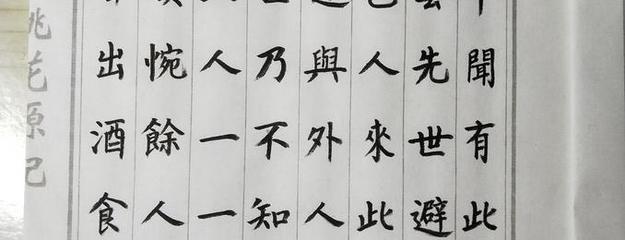 聞有此
先世避
人來此
與外人
乃不知
人一一
惋餘人
出酒食
桃花源記